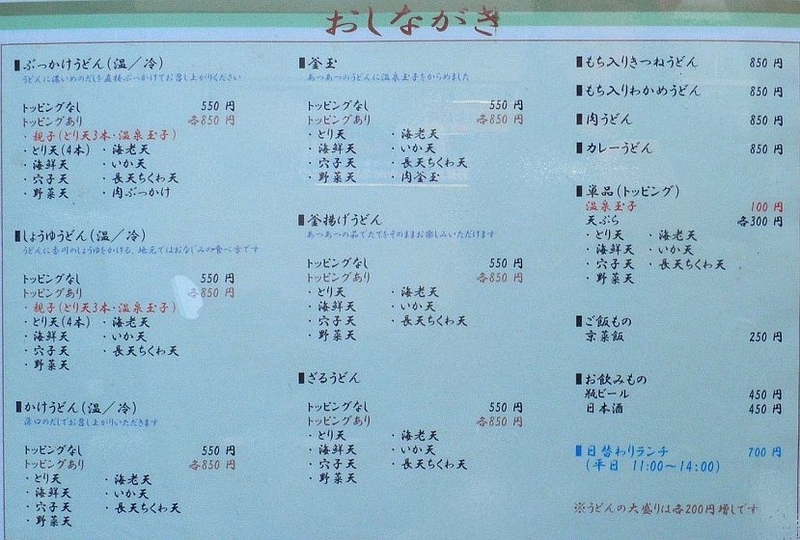 おしながき
ぶっかけうどん(温/冷)
うどんに濃いめのだしを直接ぶっかけてお召し上がりください
トッピングなし 550 円
トッピングあり 各850 円
・親子(とり天3本・温泉玉子)
・とり天(4本) ・海老天
・海鮮天 ・いか天
・穴子天 ・長天ちくわ天
・野菜天 ・肉ぶっかけ
しょうゆうどん(温/冷)
うどんに香川のしょうゆをかける、地元ではおなじみの食べ方です
トッピングなし 550 円
トッピングあり 各850 円
・親子(とり天3本・温泉玉子)
・とり天(4本) ・海老天
・海鮮天 ・いか天
・穴子天 ・長天ちくわ天
・野菜天
かけうどん(温/冷)
薄口のだしでお召し上がりいただきます
トッピングなし 550 円
トッピングあり 各850 円
・とり天 ・海老天
・海鮮天 ・いか天
・穴子天 ・長天ちくわ天
・野菜天
釜玉
あつあつのうどんに温泉玉子をからめました
トッピングなし 550 円
トッピングあり 各850 円
・とり天 ・海老天
・海鮮天 ・いか天
・穴子天 ・長天ちくわ天
・野菜天 ・肉釜玉
釜揚げうどん
あつあつの茹でたてをそのままお楽しみいただけます
トッピングなし 550 円
トッピングあり 各850 円
・とり天 ・海老天
・海鮮天 ・いか天
・穴子天 ・長天ちくわ天
・野菜天
ざるうどん
トッピングなし 550 円
トッピングあり 各850 円
・とり天 ・海老天
・海鮮天 ・いか天
・穴子天 ・長天ちくわ天
・野菜天
もち入りきつねうどん 850 円
もち入りわかめうどん 850 円
肉うどん 850 円
カレーうどん 850 円
単品(トッピング)
温泉玉子 100 円
天ぷら 各300 円
・とり天 ・海老天
・海鮮天 ・いか天
・穴子天 ・長天ちくわ天
・野菜天
ご飯もの
京菜飯 250 円
お飲みもの
瓶ビール 450 円
日本酒 450 円
日替わりランチ 700 円
(平日 11:00~14:00)
※うどんの大盛りは各200円増しです